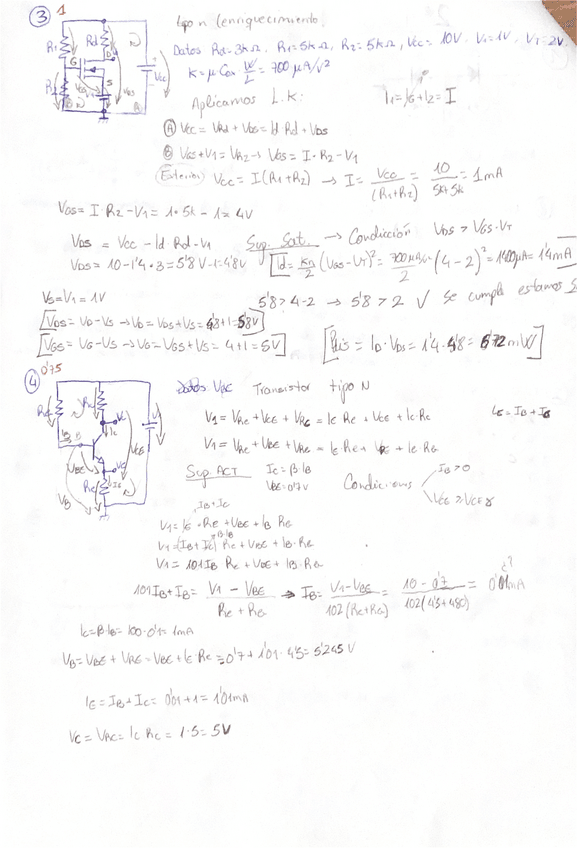 ③ 1
tipo n (enriquecimiento)
Datos Rd=3kΩ, R1=5kΩ, R2=5kΩ, Vcc= 10V, V1=1V, VT=2V
K=μ Cox W/L = 700 μA/V²
Aplicamos L.K:
I1=IG+I2= I
Ⓐ Vcc = VRd + VDS = Id Rd + VDS
Ⓑ VGS+V1=VR2 → VGS= I·R2 - V1
(Exterior) Vcc = I(R1+R2) → I= Vcc/(R1+R2) = 10/(5k+5k) = 1mA
VGS= I R2 - V1 = 1·5k - 1 = 4V
VDS = Vcc - Id Rd - V1
Sup. Sat. → Condición VDS > VGS-VT
VDS= 10-1'4·3= 5'8V-1=4'8V
Id= Kn/2 (VGS-VT)² = 700μA/2 (4-2)² = 1400μA= 1'4mA
VS=V1= 1V
5'8>4-2 → 5'8>2 ✓ Se cumple estamos S
[VDS= VD-VS → VD= VDS+VS= 4'8+1= 5'8V]
[VGS= VG-VS → VG= VGS+VS= 4+1= 5V]
[Pdis = ID·VDS= 1'4·4'8= 6'72mW]
④ 0'75
Datos VRC Transistor tipo N
V1 = VRC + VCE + VRE = IC RC + VCE + IE·RE
IE= IB+IC
Sup. ACT
IC=β·IB
VBE= 0'7V
Condiciones
IB>0
VCE>VCEγ
IB+IC
V1= IE·RE + VBE + IB RB
V1=(IB+IC) RE + VBE + IB·RB
V1= 101IB RE + VBE + IB·RB
101IB+IB= (V1-VBE)/(RE+RB) → IB= (V1-VBE)/(102(RE+RB)) = (10-0'7)/(102(4'5+480)) = 0'01mA ¿?
IC=β·IB= 100·0'01= 1mA
VB= VBE + VRE= VBE + IE RE = 0'7 + 1'01·4'5= 5'245 V
IE= IB+IC= 0'01+1= 1'01mA
VC= VRC= IC RC = 1·5= 5V